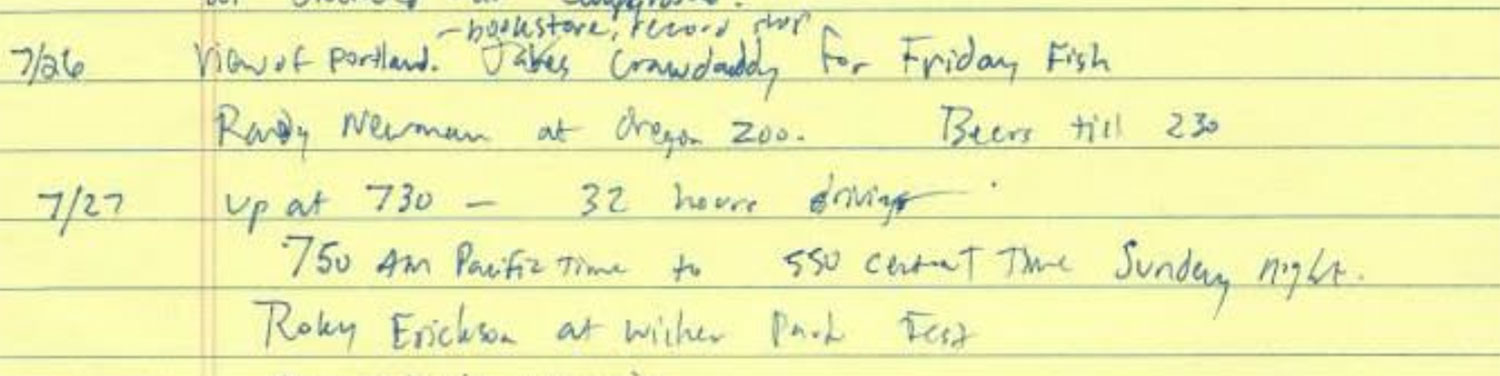 - bookstore, record shop
7/26 View of Portland. Jakes Crawdaddy for Friday Fish
Randy Newman at Oregon Zoo. Beers till 230
7/27 up at 730 - 32 hours driving
750 AM Pacific Time to 550 central Time Sunday night.
Roky Erickson at Wicker Park Fest